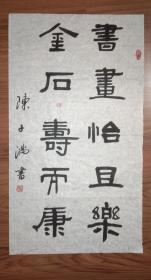 書畫怡且樂
金石壽而康
陳子鴻書